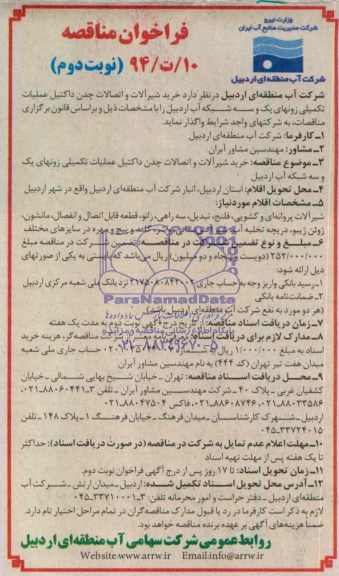 وزارت نیرو
شرکت مدیریت منابع آب ایران
شرکت آب منطقه ای اردبیل
فراخوان مناقصه
۱۰/ت/۹۴ (نوبت دوم)
شرکت آب منطقه ای اردبیل درنظر دارد خرید شیرآلات و اتصالات چدن داکتیل عملیات
تکمیلی زونهای یک و سه شبکه آب اردبیل را با مشخصات ذیل و براساس قانون برگزاری
مناقصات، به شرکتهای واجد شرایط واگذار نماید.
۱ـ کارفرما: شرکت آب منطقه ای اردبیل
۲ـ مشاور: مهندسین مشاور آبران
۳ـ موضوع مناقصه: خرید شیرآلات و اتصالات چدن داکتیل عملیات تکمیلی زونهای یک
و سه شبکه آب اردبیل
۴ـ محل تحویل اقلام: استان اردبیل، انبار شرکت آب منطقه ای اردبیل واقع در شهر اردبیل
۵ـ مشخصات اقلام موردنیاز:
شیرآلات پروانه ای و کشویی، فلنج، تبدیل، سه راهی، زانو، قطعه قابل اتصال و انفصال، مانشون،
و پیچ و مهره در سایزهای مختلف
۶ـ مبلغ و نوع تضمین شرکت در مناقصه: تضمین شرکت در مناقصه مبلغ
۲۵۲/۰۰۰/۰۰۰ (دویست و پنجاه و دو میلیون) ریال می باشد که بایستی به یکی از صورتهای
ذیل ارائه شود:
۱ـ رسید بانکی واریز وجه به حساب جاری نزد بانک ملی شعبه مرکزی اردبیل
۲ـ ضمانت نامه بانکی
(هر دو مورد به نفع شرکت آب منطقه ای اردبیل باشد)
۷ـ زمان دریافت اسناد مناقصه: از تاریخ درج آگهی نوبت دوم به مدت یک هفته
۸ـ مدارک لازم برای دریافت اسناد: مناقصه گر، هزینه خرید
اسناد به مبلغ ۱/۰۰۰/۰۰۰ ریال به حساب جاری ملی شعبه
میدان هفت تیر تهران (کد ۴۴۴) به نام مهندسین مشاور آبران
۹ـ محل دریافت اسناد مناقصه: تهران ـ خیابان شیخ بهایی شمالی ـ خیابان
اردبیل ـ شهرک کارشناسان ـ میدان فرهنگ ـ خیابان فرهنگ ۱ ـ پلاک ۱۴۸ ـ تلفن
۰۴۵-۳۳۷۲۴۰۱۵
۱۰ـ مهلت اعلام عدم تمایل به شرکت در مناقصه (در صورت دریافت اسناد): حداکثر
تا یک هفته پس از مهلت تهیه اسناد
۱۱ـ زمان تحویل اسناد: تا ۱۷ روز پس از درج آگهی فراخوان نوبت دوم.
۱۲ـ آدرس محل تحویل اسناد تکمیل شده: اردبیل ـ میدان ارتش ـ شرکت آب
منطقه ای اردبیل ـ دفتر حراست و امور محرمانه تلفن: ۳-۳۳۷۱۰۰۰۱-۰۴۵
لازم به ذکر است کارفرما در رد یا قبول مدارک مناقصه گران در تمام مراحل اختیار تام دارد.
ضمناً هزینه های آگهی بر عهده برنده مناقصه خواهد بود.
روابط عمومی شرکت سهامی آب منطقه ای اردبیل
Website:www.arrw.ir Email:info@arrw.ir
ParsNamadData
پایگاه اطلاع رسانی مناقصه و مزایده
۰۲۱-۸۸۳۴۹۶۷۰-۵